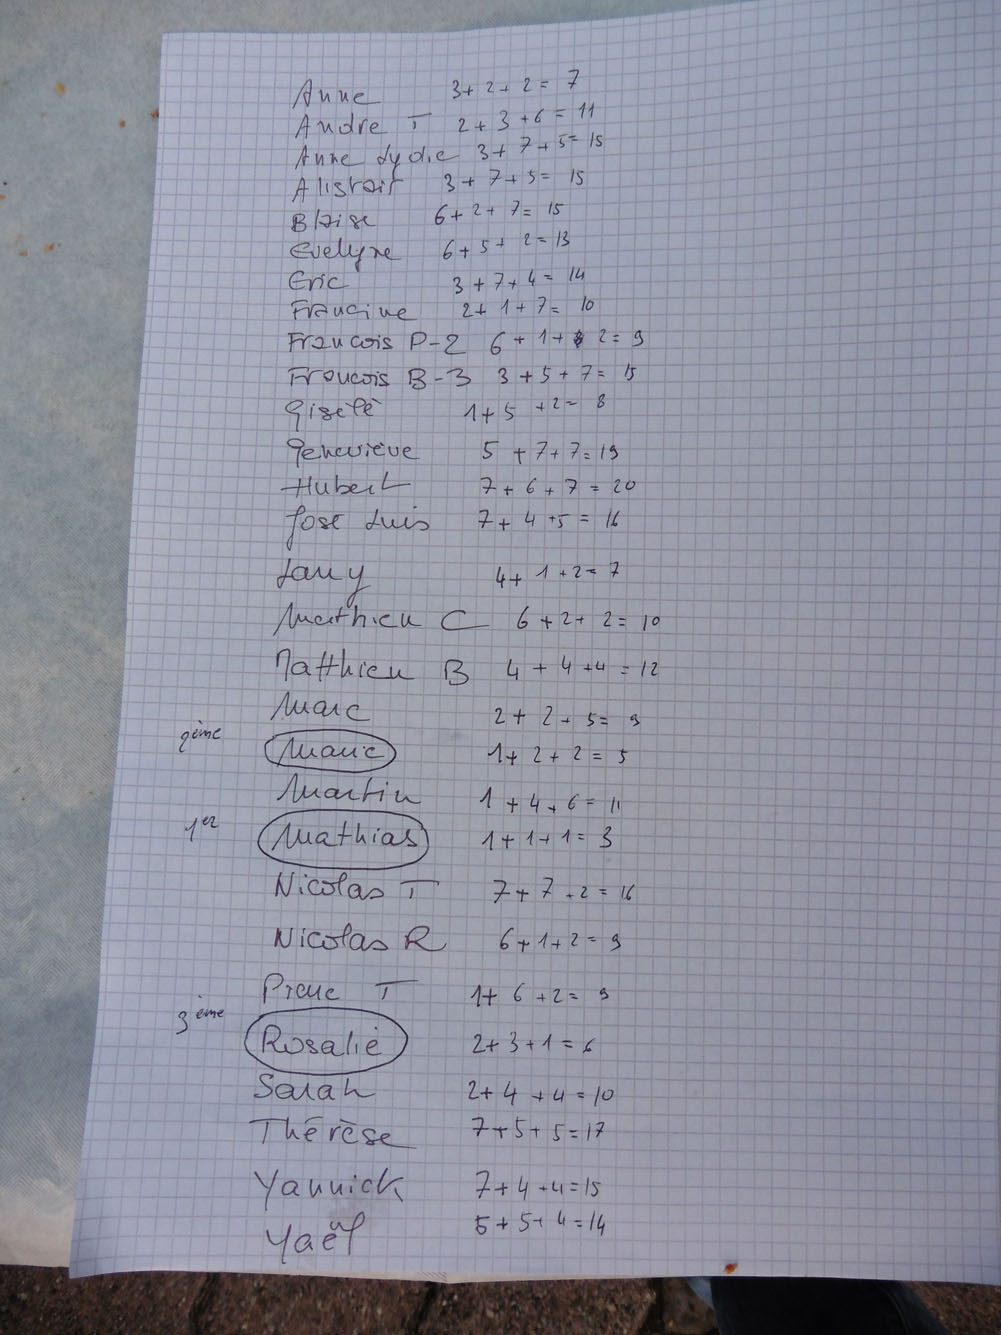 Anne 3 + 2 + 2 = 7
Andre T 2 + 3 + 6 = 11
Anne Lydie 3 + 7 + 5 = 15
Alistair 3 + 7 + 5 = 15
Blaise 6 + 2 + 7 = 15
Evelyne 6 + 5 + 2 = 13
Eric 3 + 7 + 4 = 14
Francine 2 + 1 + 7 = 10
Francois P-2 6 + 1 + 2 = 9
Francois B-3 3 + 5 + 7 = 15
Gisèle 1 + 5 + 2 = 8
Geneviève 5 + 7 + 7 = 19
Hubert 7 + 6 + 7 = 20
José Luis 7 + 4 + 5 = 16
Lany 4 + 1 + 2 = 7
Mathieu C 6 + 2 + 2 = 10
Matthieu B 4 + 4 + 4 = 12
Marc 2 + 2 + 5 = 9
2ème Marie 1 + 2 + 2 = 5
Martin 1 + 4 + 6 = 11
1er Mathias 1 + 1 + 1 = 3
Nicolas T 7 + 7 + 2 = 16
Nicolas R 6 + 1 + 2 = 9
Pierre T 1 + 6 + 2 = 9
3ème Rosalie 2 + 3 + 1 = 6
Sarah 2 + 4 + 4 = 10
Thérèse 7 + 5 + 5 = 17
Yannick 7 + 4 + 4 = 15
Yaël 5 + 5 + 4 = 14